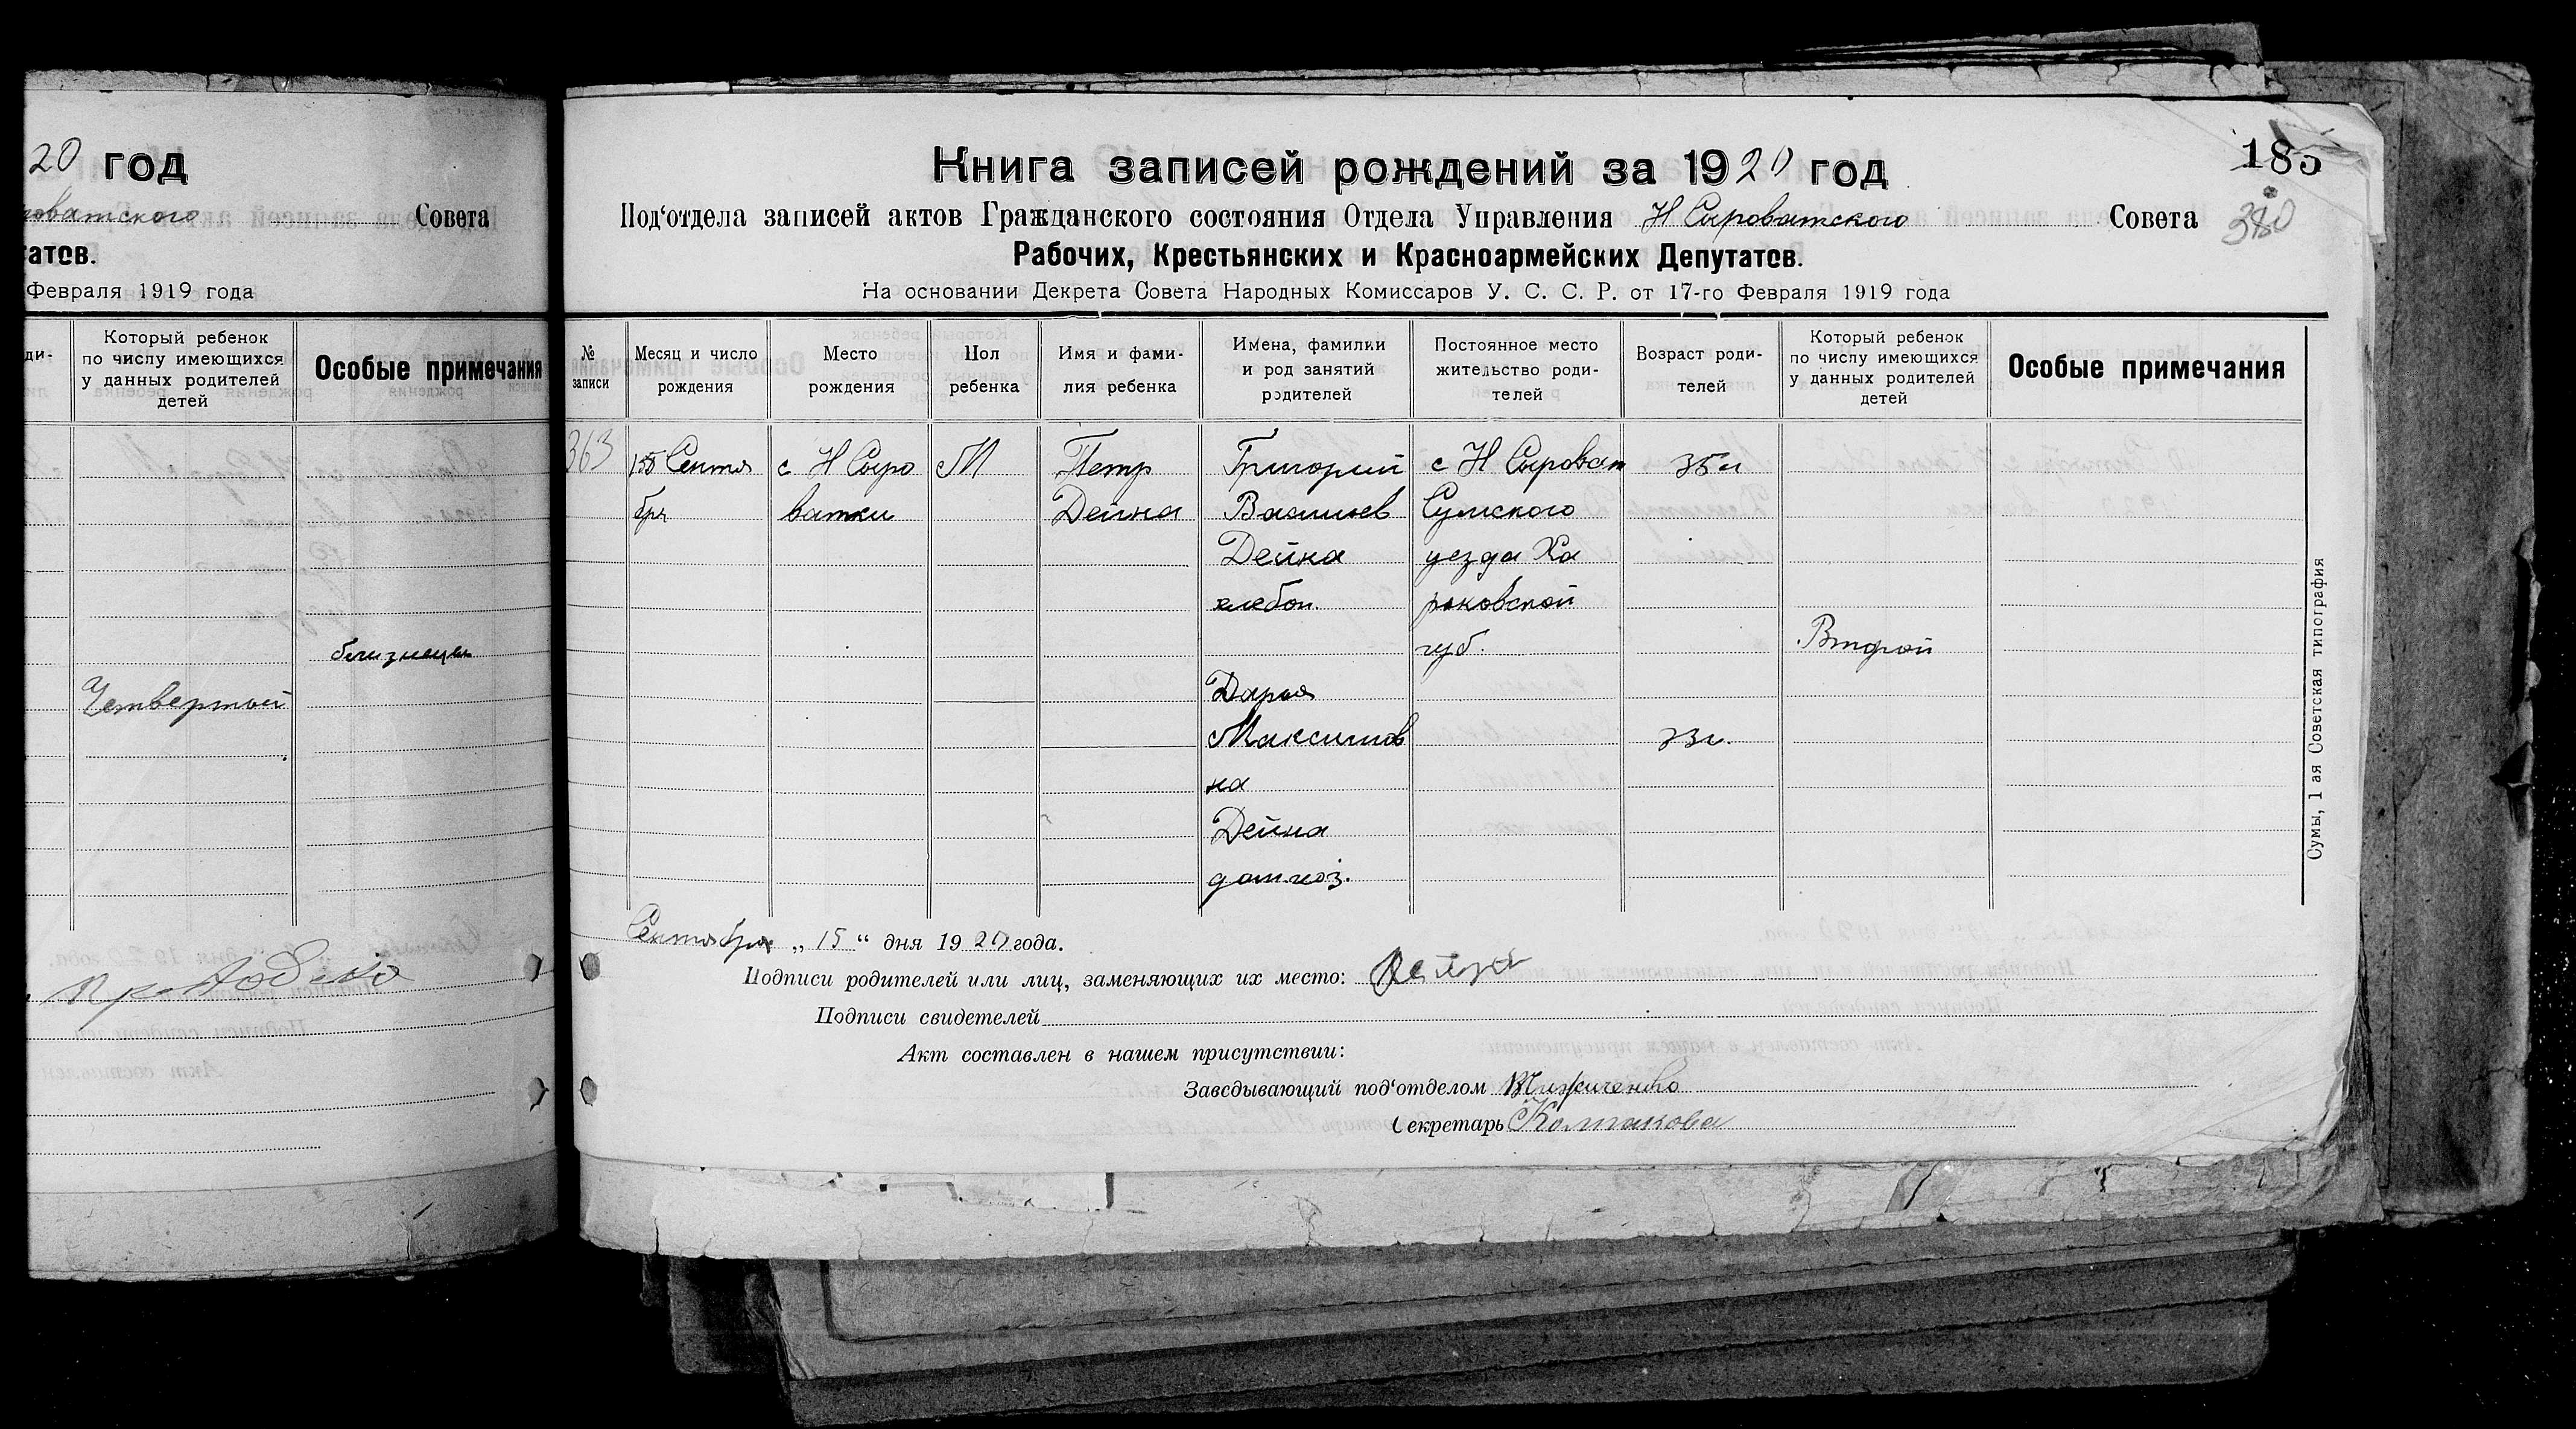 20 год
оватского Совета
татов.
Февраля 1919 года
ди-
Который ребенок
по числу имеющихся
у данных родителей
детей
Особые примечания
близнецы
Четвертый
185
380
Книга записей рождений за 1920 год
Под‘отдела записей актов Гражданского состояния Отдела Управления Н Сыроватского Совета
Рабочих, Крестьянских и Красноармейских Депутатов.
На основании Декрета Совета Народных Комиссаров У. С. С. Р. от 17-го Февраля 1919 года
№
записи
Месяц и число
рождения
Место
рождения
Пол
ребенка
Имя и фами-
лия ребенка
Имена, фамилии
и род занятий
родителей
Постоянное место
жительство роди-
телей
Возраст роди-
телей
Который ребенок
по числу имеющихся
у данных родителей
детей
Особые примечания
363
Сентя
бря
с Н Сыро
ватки
М
Петр
Дейна
Григорий
Васильев
Дейка
хлебоп.
Дарья
Максимов
на
Дейна
домхоз.
с Н Сыроват
Сумского
уезда Ха
рьковской
губ.
35 л
23 г.
Второй
Сентября „ 15 “ дня 1920 года.
Подписи родителей или лиц, заменяющих их место: Дейна
Подписи свидетелей
Акт составлен в нашем присутствии:
Заведывающий под‘отделом
Секретарь Колтакова
Сумы, 1 ая Советская типография